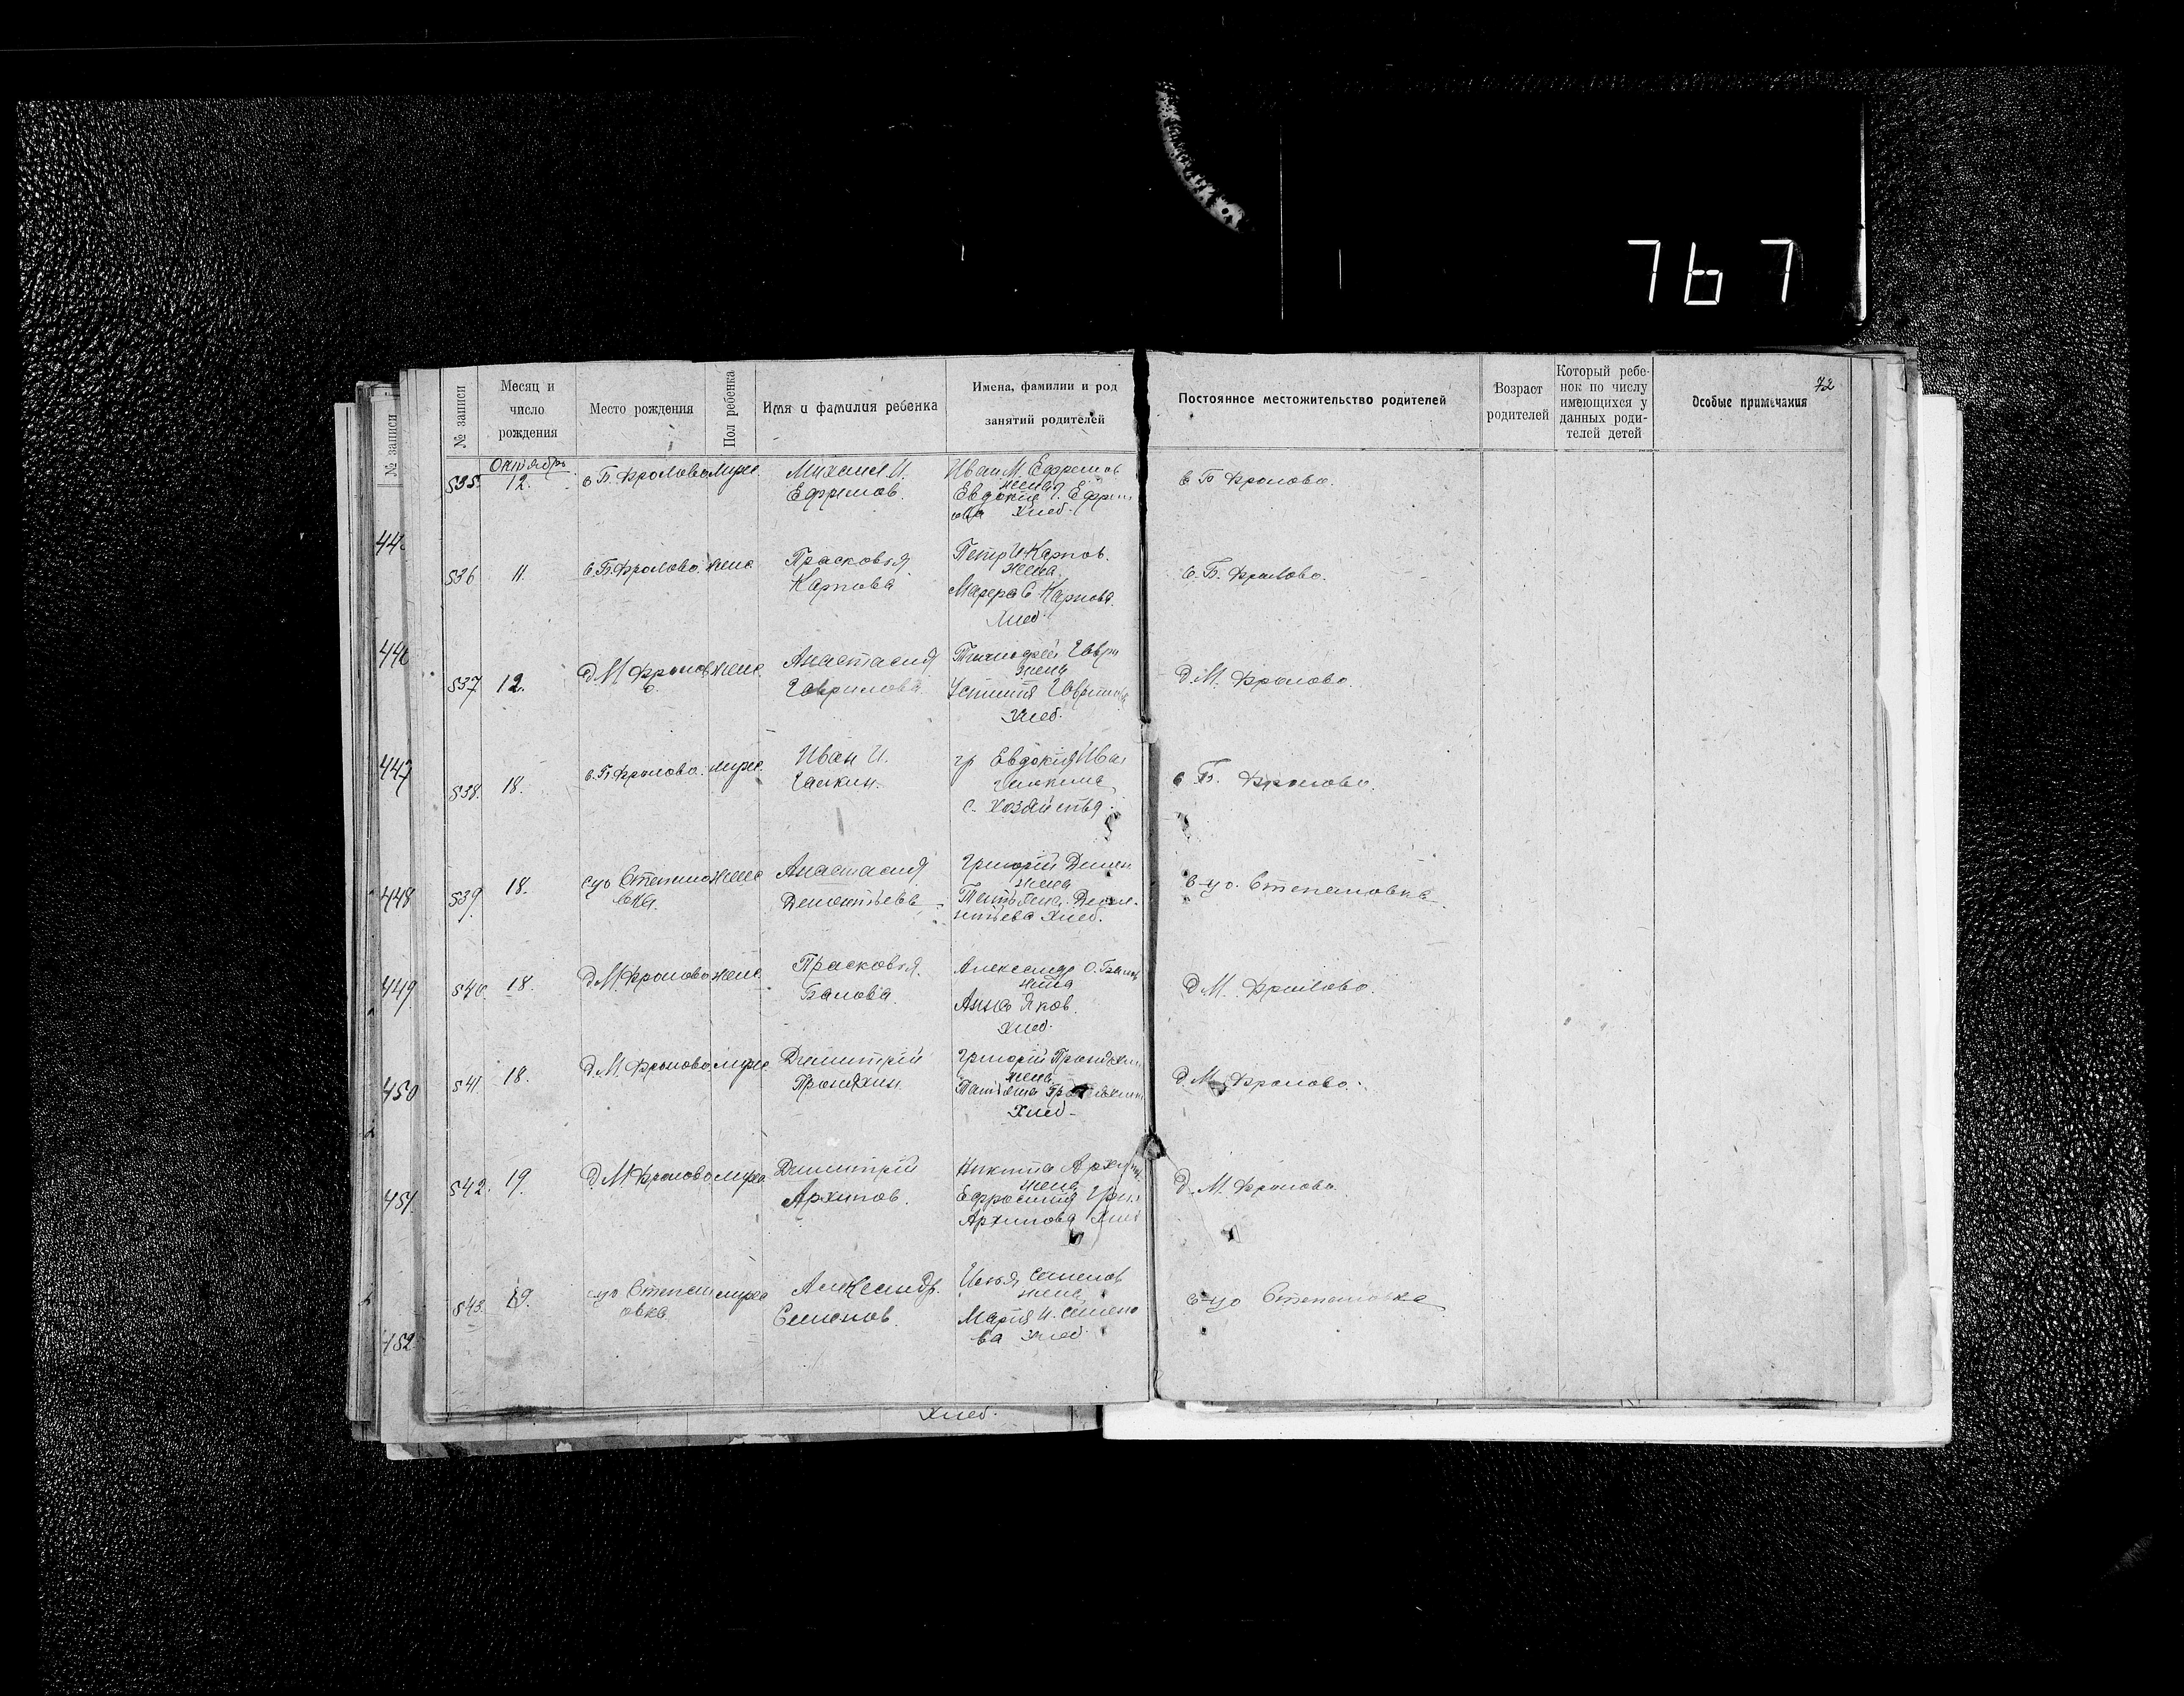 767
72
№ записи
№ записи
Месяц и
число
рождения
Место рождения
Пол ребенка
Имя и фамилия ребенка
Имена, фамилии и род
занятий родителей
Постоянное местожительство родителей
Возраст
родителей
Который ребе-
нок по числу
имеющихся у
данных роди-
телей детей
Особые примечания
Октябрь
535. 12. с Б. Фролово муж. Михаил И. Иван М. Ефремов с Б Фролово.
жена
Ефремов. Евдокия Ефрем
ова Хлеб.
536 11. с. Б. Фролово. жен. Прасковья Петр И Карпов. с. Б. Фролово.
жена
Карпова С Карпова.
Хлеб.
446
537 12. д М Фролов жен. Анастасия Гаври д. М. Фролово.
о. жена
Гаврилова. Устинья Гаврилова
Хлеб.
447
538. 18. с. Б Фролово. муж. Иван И. гр Евдокия Иван с Б. Фролово.
Галкин.
с. хозяйства.
448
539. 18. с-цо Степано жен. Анастасия Григорий Демен с-цо. Степановка.
вка. жена
Дементьева Татьяна Демен-
тьева Хлеб.
449
540. 18. д М Фролово жен. Прасковья Александр О. д М. Фролово.
жена
Балова. Анна Яков.
Хлеб.
450
541. 18. д. М. Фролово. муж. Димитрий Григорий Пронякин д. М. Фролово.
жена
Пронякин. Татьяна
Хлеб-
451
542. 19. д. М Фролово муж Димитрий Никита Архипов д. М. Фролово.
жена
Архипов. Ефросиния
Архипова Хлеб
543. 19. с-цо Степан муж Александр. Илья Семенов с-цо Степановка
овка. жена
Семенов. Мария И. Семено
ва Хлеб.
452
Хлеб.